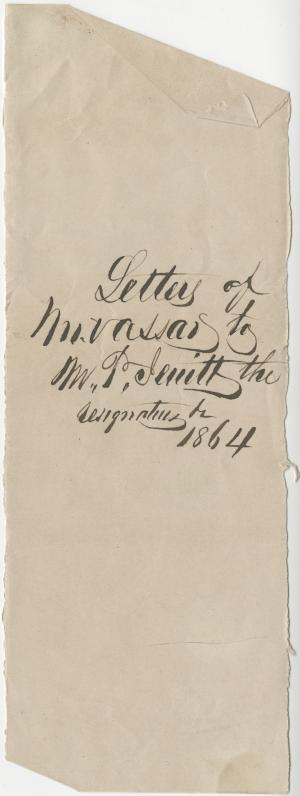 Letters of
M. Vassar to
M. P. Jewett the
resignation &c
1864